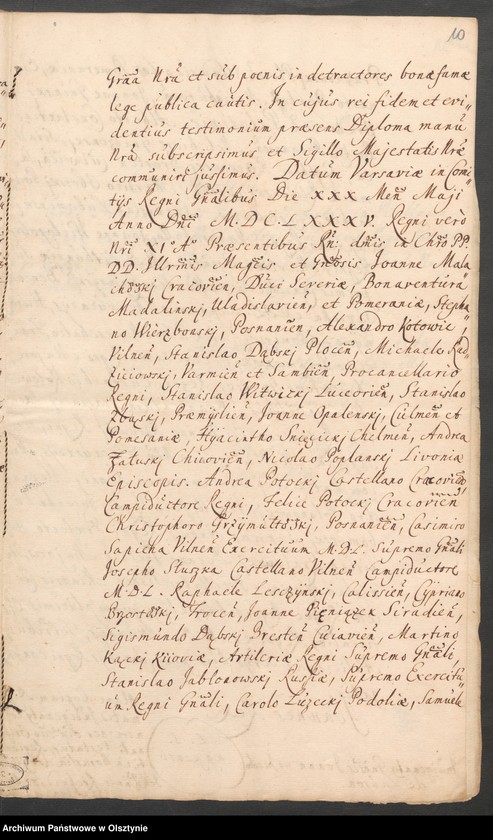 10
Grãa Nrã et sub poenis in detractores bonæ famæ
lege publica cautis. In cujus rei fidem et evi„
dentius testimonium præsens Diploma manu
Nrã subscripsimus et Sigillo Majestatis Nrã
communiri jussimus. Datum Varsaviæ in Comi„
tijs Regni Gñalibus Die XXX Men Maji
Anno Dñi M.D.C.LXXXV. Regni vero
Nri XI° A° Præsentibus Rñ: dñis in Chro P.P.
D.D. Illrmis Magcis et Grosis Joanne Mala
chowskj Cracovien, Duci Severiæ, Bonaventura
Madalinskj, Uladislavien, et Pomeraniæ, Stepha„
no Wierzbowskj, Posnanien, Alexandro Kotowic,
Vilnen, Stanislao Dąbskj Plocen, Michaele Rad„
ziciowskj, Varmien et Sambien Procancellario
Regni, Stanislao Witwickj Luceorien, Stanislao
Zbąskj, Præmyslien, Joanne Opalenskj, Culmen et
Pomesaniæ, Hyacintho Swięcickj Chelmen, Andrea
Załuskj Chiiovien, Nicolao Poplanskj Livoniæ
Episcopis. Andrea Potockj Castellano Cracovien,
Campiductore Regni, Felice Potockj Cracovien
Christophoro Grzymułtowskj, Posnanien, Casimiro
Sapieha Vilnen Exercituum M.D.L. Supremo Gñali
Josepho Sluszka Castellano Vilnen Campiductore
M.D.L. Raphaele Lesczynskj, Calissien, Cypriano
Brzostowskj, Trocen, Joanne Pieniążek Siradien,
Sigismundo Dąbskj Bresten Cuiavien, Martino
Kąckj Kiioviæ, Artileriæ Regni Supremo Gñale,
Stanislao Jablonowskj Russiæ, Supremo Exercitu„
um Regni Gñali, Carolo Luzeckj Podoliæ, Samuele
Archiwum Państwowe w Olsztynie